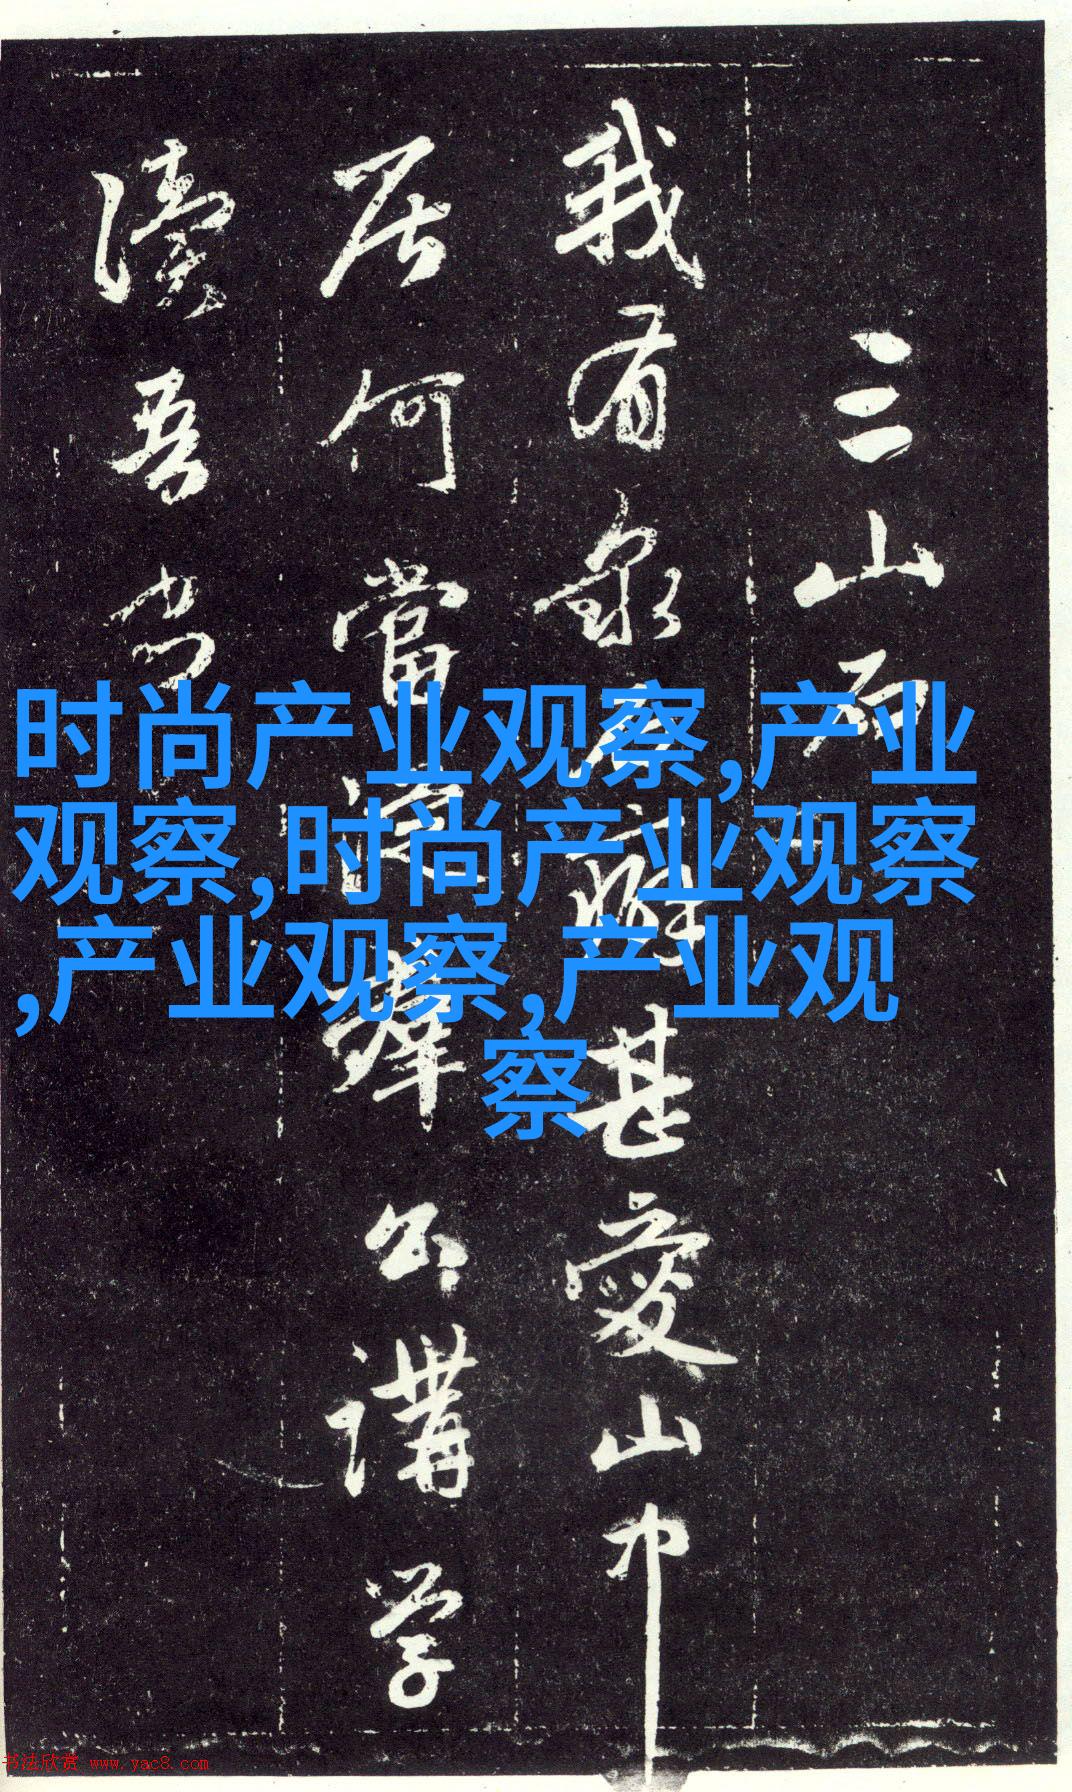 三山
我有泉石癖甚愛山中
居何當從群公講學
讀吾書
时尚产业观察,产业
观察,时尚产业观察
,产业观察,产业观
察
书法欣赏 www.yac8.com